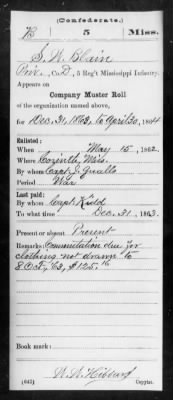 (Confederate.)
B 5 Miss.
S. W. Blain
Priv., Co. D, 5 Reg't Mississippi Infantry.
Appears on
Company Muster Roll
of the organization named above,
for Dec. 31, 1863, to April 30, 1864
Enlisted:
When May 15, 1862.
Where Corinth, Miss.
By whom Capt. J.
Period War
Last paid:
By whom Capt. Kidd
To what time Dec. 31, 1863.
Present or absent Present
Remarks: Commutation due for
clothing not drawn to
8 Oct, '63, $125.
Book mark:
Hibbard
(642) Copyist.